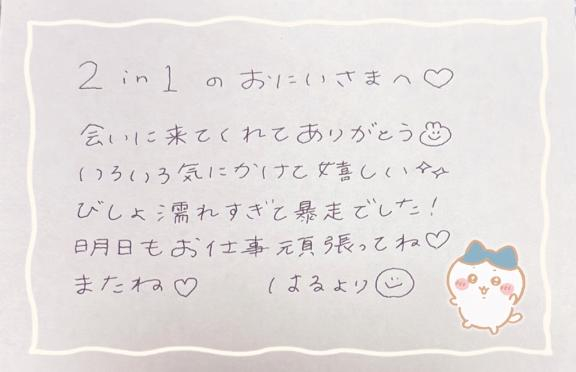 2in1のおにいさまへ♡
会いに来てくれてありがとう
いろいろ気にかけて嬉しい✧✧
びしょ濡れすぎて暴走でした!
明日もお仕事頑張ってね♡
またね♡ はるより☺